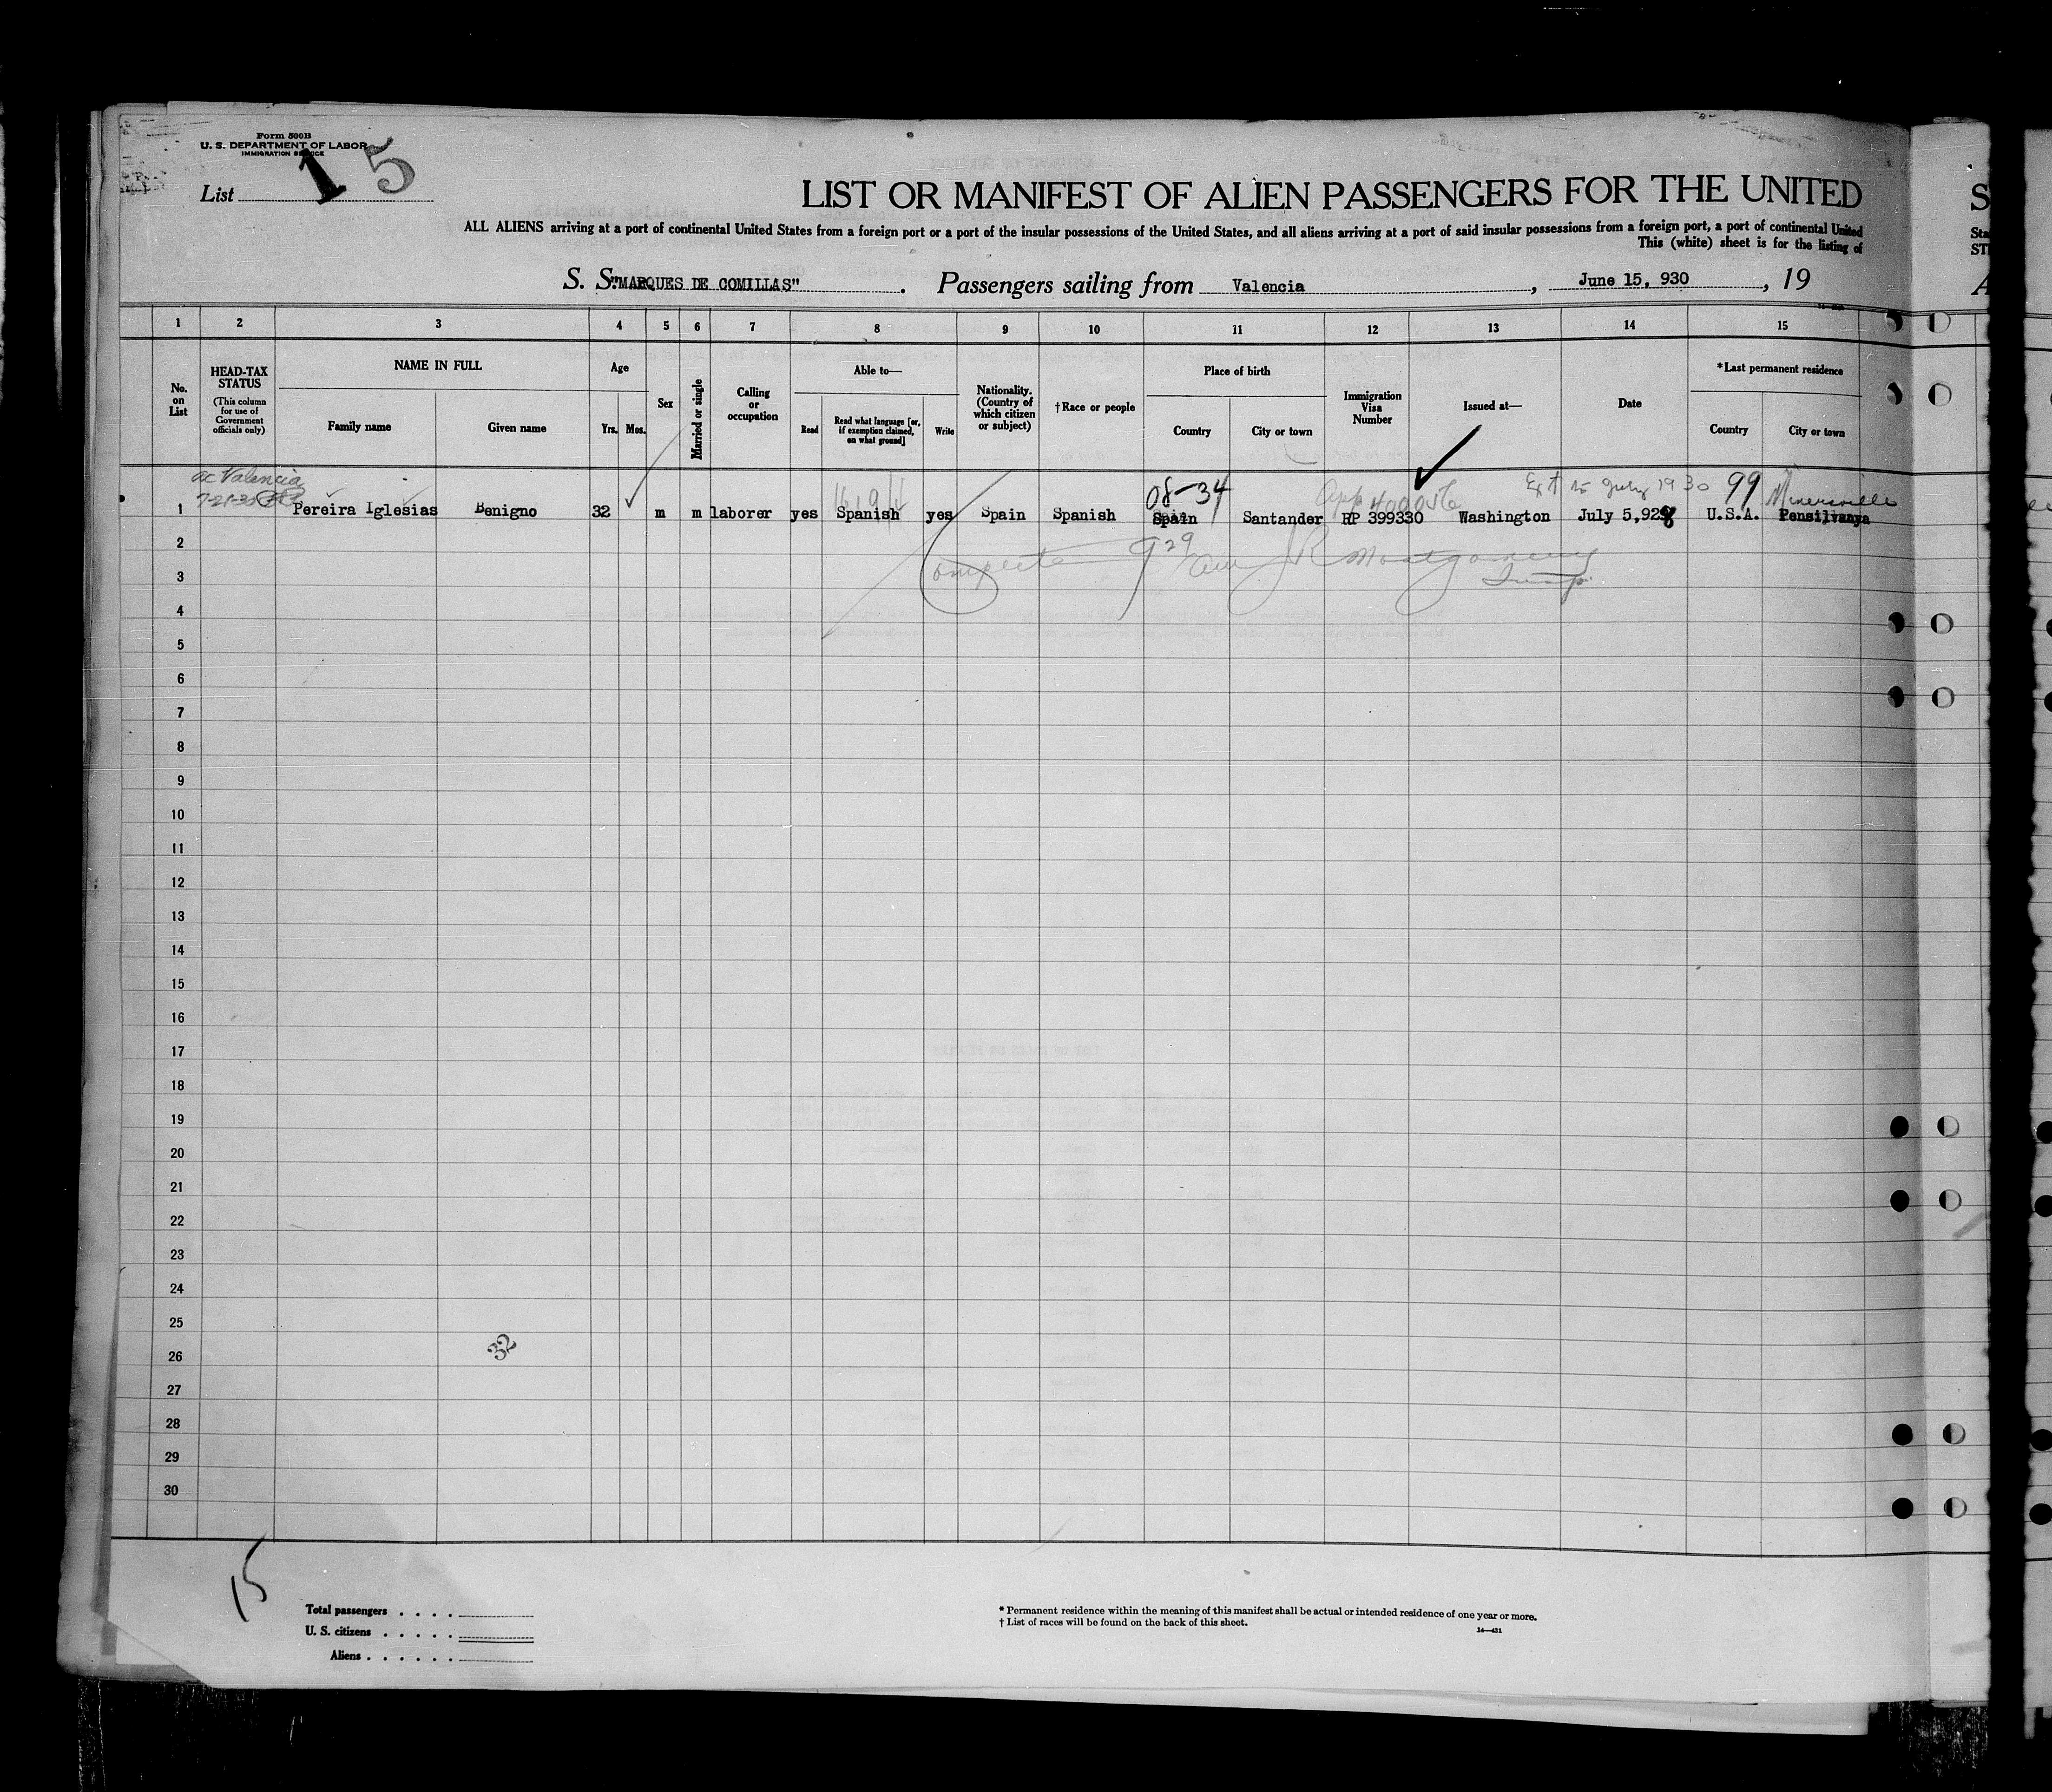 Form 500B
U. S. DEPARTMENT OF LABOR
IMMIGRATION SERVICE
List 1 5
LIST OR MANIFEST OF ALIEN PASSENGERS FOR THE UNITED
ALL ALIENS arriving at a port of continental United States from a foreign port or a port of the insular possessions of the United States, and all aliens arriving at a port of said insular possessions from a foreign port, a port of continental United
This (white) sheet is for the listing of
S. S. "MARQUES DE COMILLAS". Passengers sailing from Valencia, June 15, 930, 19
1 2 3 4 5 6 7 8 9 10 11 12 13 14 15
No. on List
HEAD-TAX STATUS
(This column for use of Government officials only)
NAME IN FULL
Family name Given name
Age
Yrs. Mos.
Sex
Married or single
Calling or occupation
Able to—
Read Read what language [or, if exemption claimed, on what ground] Write
Nationality. (Country of which citizen or subject)
†Race or people
Place of birth
Country City or town
Immigration Visa Number
Issued at—
Date
*Last permanent residence
Country City or town
ac Valencia
7-21-30
08-34 App 400056 15 July 1930 99 Minersville
1 Pereira Iglesias Benigno 32 m m laborer yes Spanish yes Spain Spanish Spain Santander RP 399330 Washington July 5,928 U.S.A. Pensilvanya
2
Complete 929 J R Montgomery
Insp.
3
4
5
6
7
8
9
10
11
12
13
14
15
16
17
18
19
20
21
22
23
24
25
32
26
27
28
29
30
15
Total passengers . . . .
U. S. citizens . . . . .
Aliens . . . . . .
* Permanent residence within the meaning of this manifest shall be actual or intended residence of one year or more.
† List of races will be found on the back of this sheet.
14—431